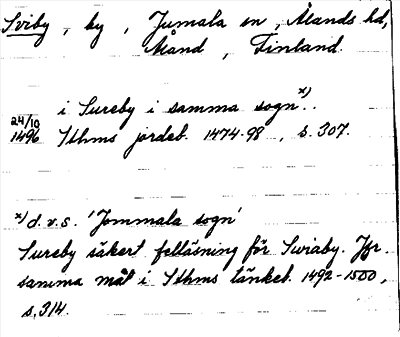 Sviby, by, Jumala sn, Ålands hd,
Åland, Finland.
i Sureby i samma sogn x)..
24/10
1496 Sthms jordeb. 1474-98, s. 307.
x) d.v.s. 'Jommala sogn'
Sureby säkert felläsning för Swiaby. Jfr.
samma mål i Sthms tänkeb. 1492-1500,
s. 314.